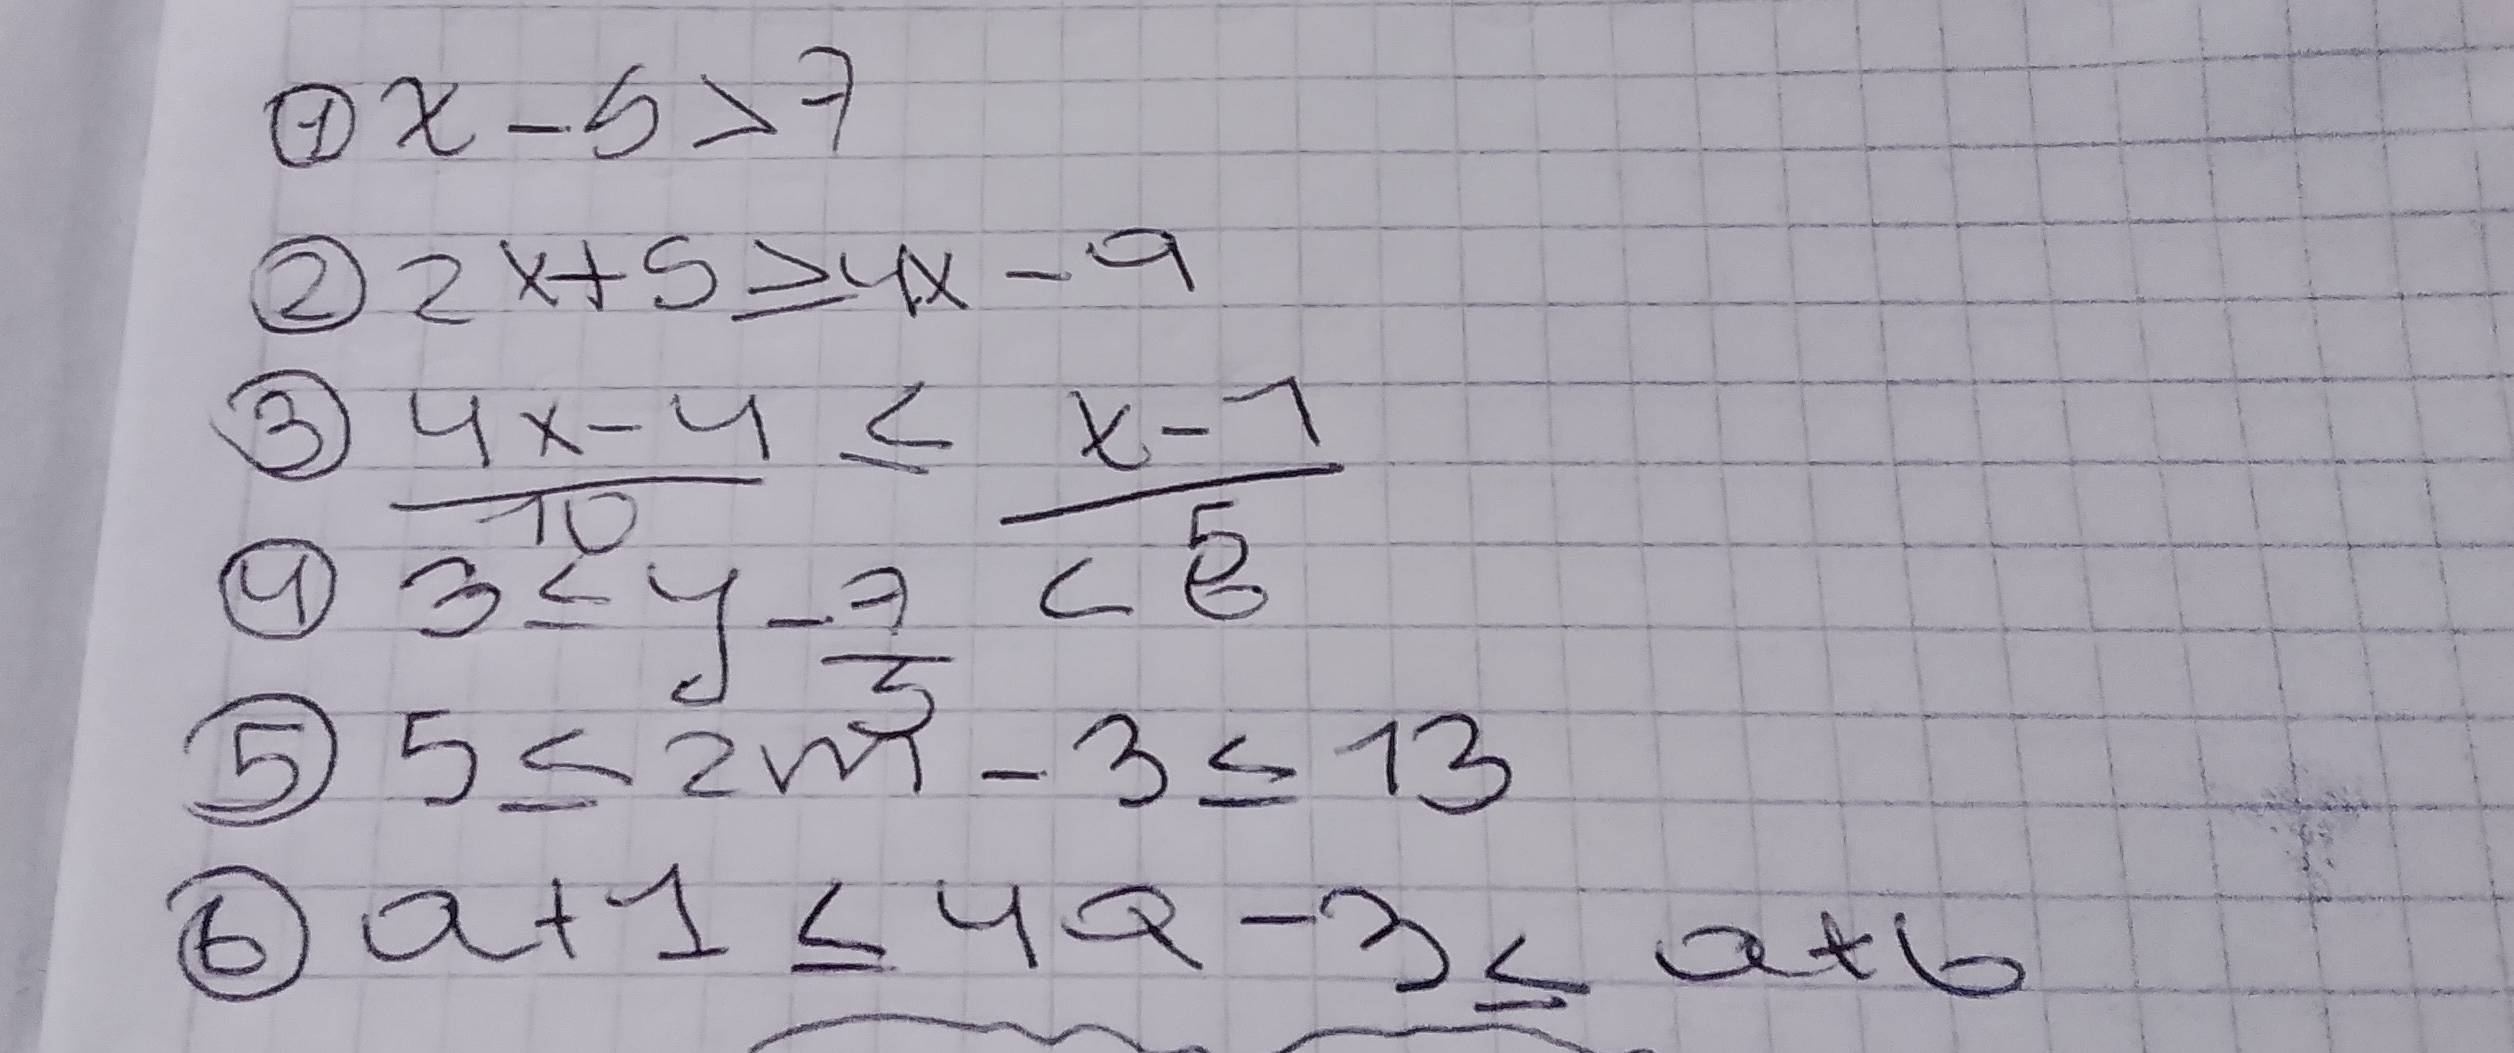 ① x - 5 > 7
② 2x + 5 ≥ 4x - 9
③ (4x - 4)/10 ≤ (x - 1)/5
④ 3 ≤ y - 7/3 < 6
⑤ 5 ≤ 2m - 3 ≤ 13
⑥ a + 1 ≤ 4a - 3 ≤ a + 6